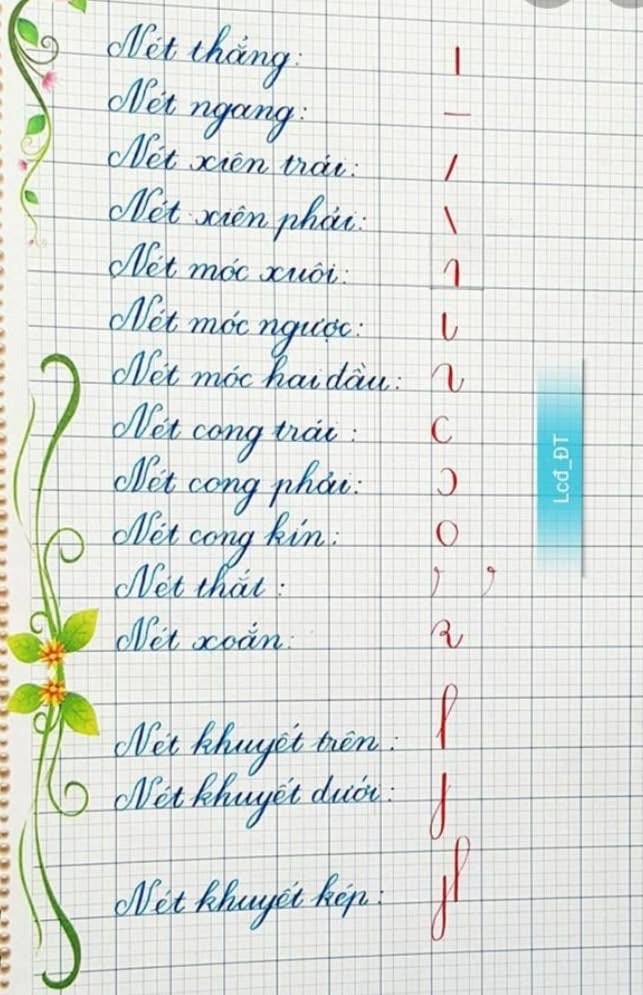 Nét thẳng:
Nét ngang:
Nét xiên trái:
Nét xiên phải:
Nét móc xuôi:
Nét móc ngược:
Nét móc hai đầu:
Nét cong trái:
Nét cong phải:
Nét cong kín:
Nét thắt:
Nét xoắn:
Nét khuyết trên:
Nét khuyết dưới:
Nét khuyết kép:
Lcđ_ĐT